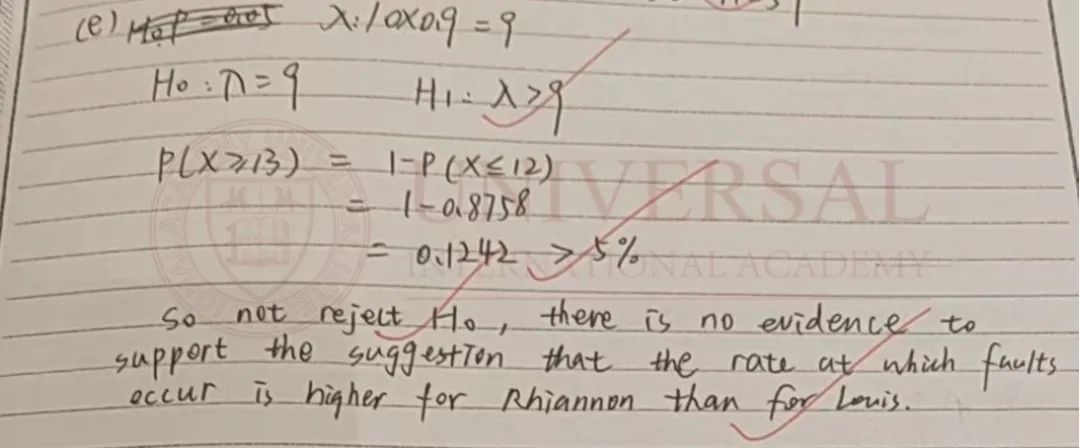 (e) λ: 10×0.9 = 9
H₀ : λ = 9 H₁ : λ > 9
P(X ≥ 13) = 1 - P(X ≤ 12)
= 1 - 0.8758
= 0.1242 > 5%
So not reject H₀, there is no evidence to
support the suggestion that the rate at which faults
occur is higher for Rhiannon than for Louis.
UNIVERSAL
INTERNATIONAL ACADEMY